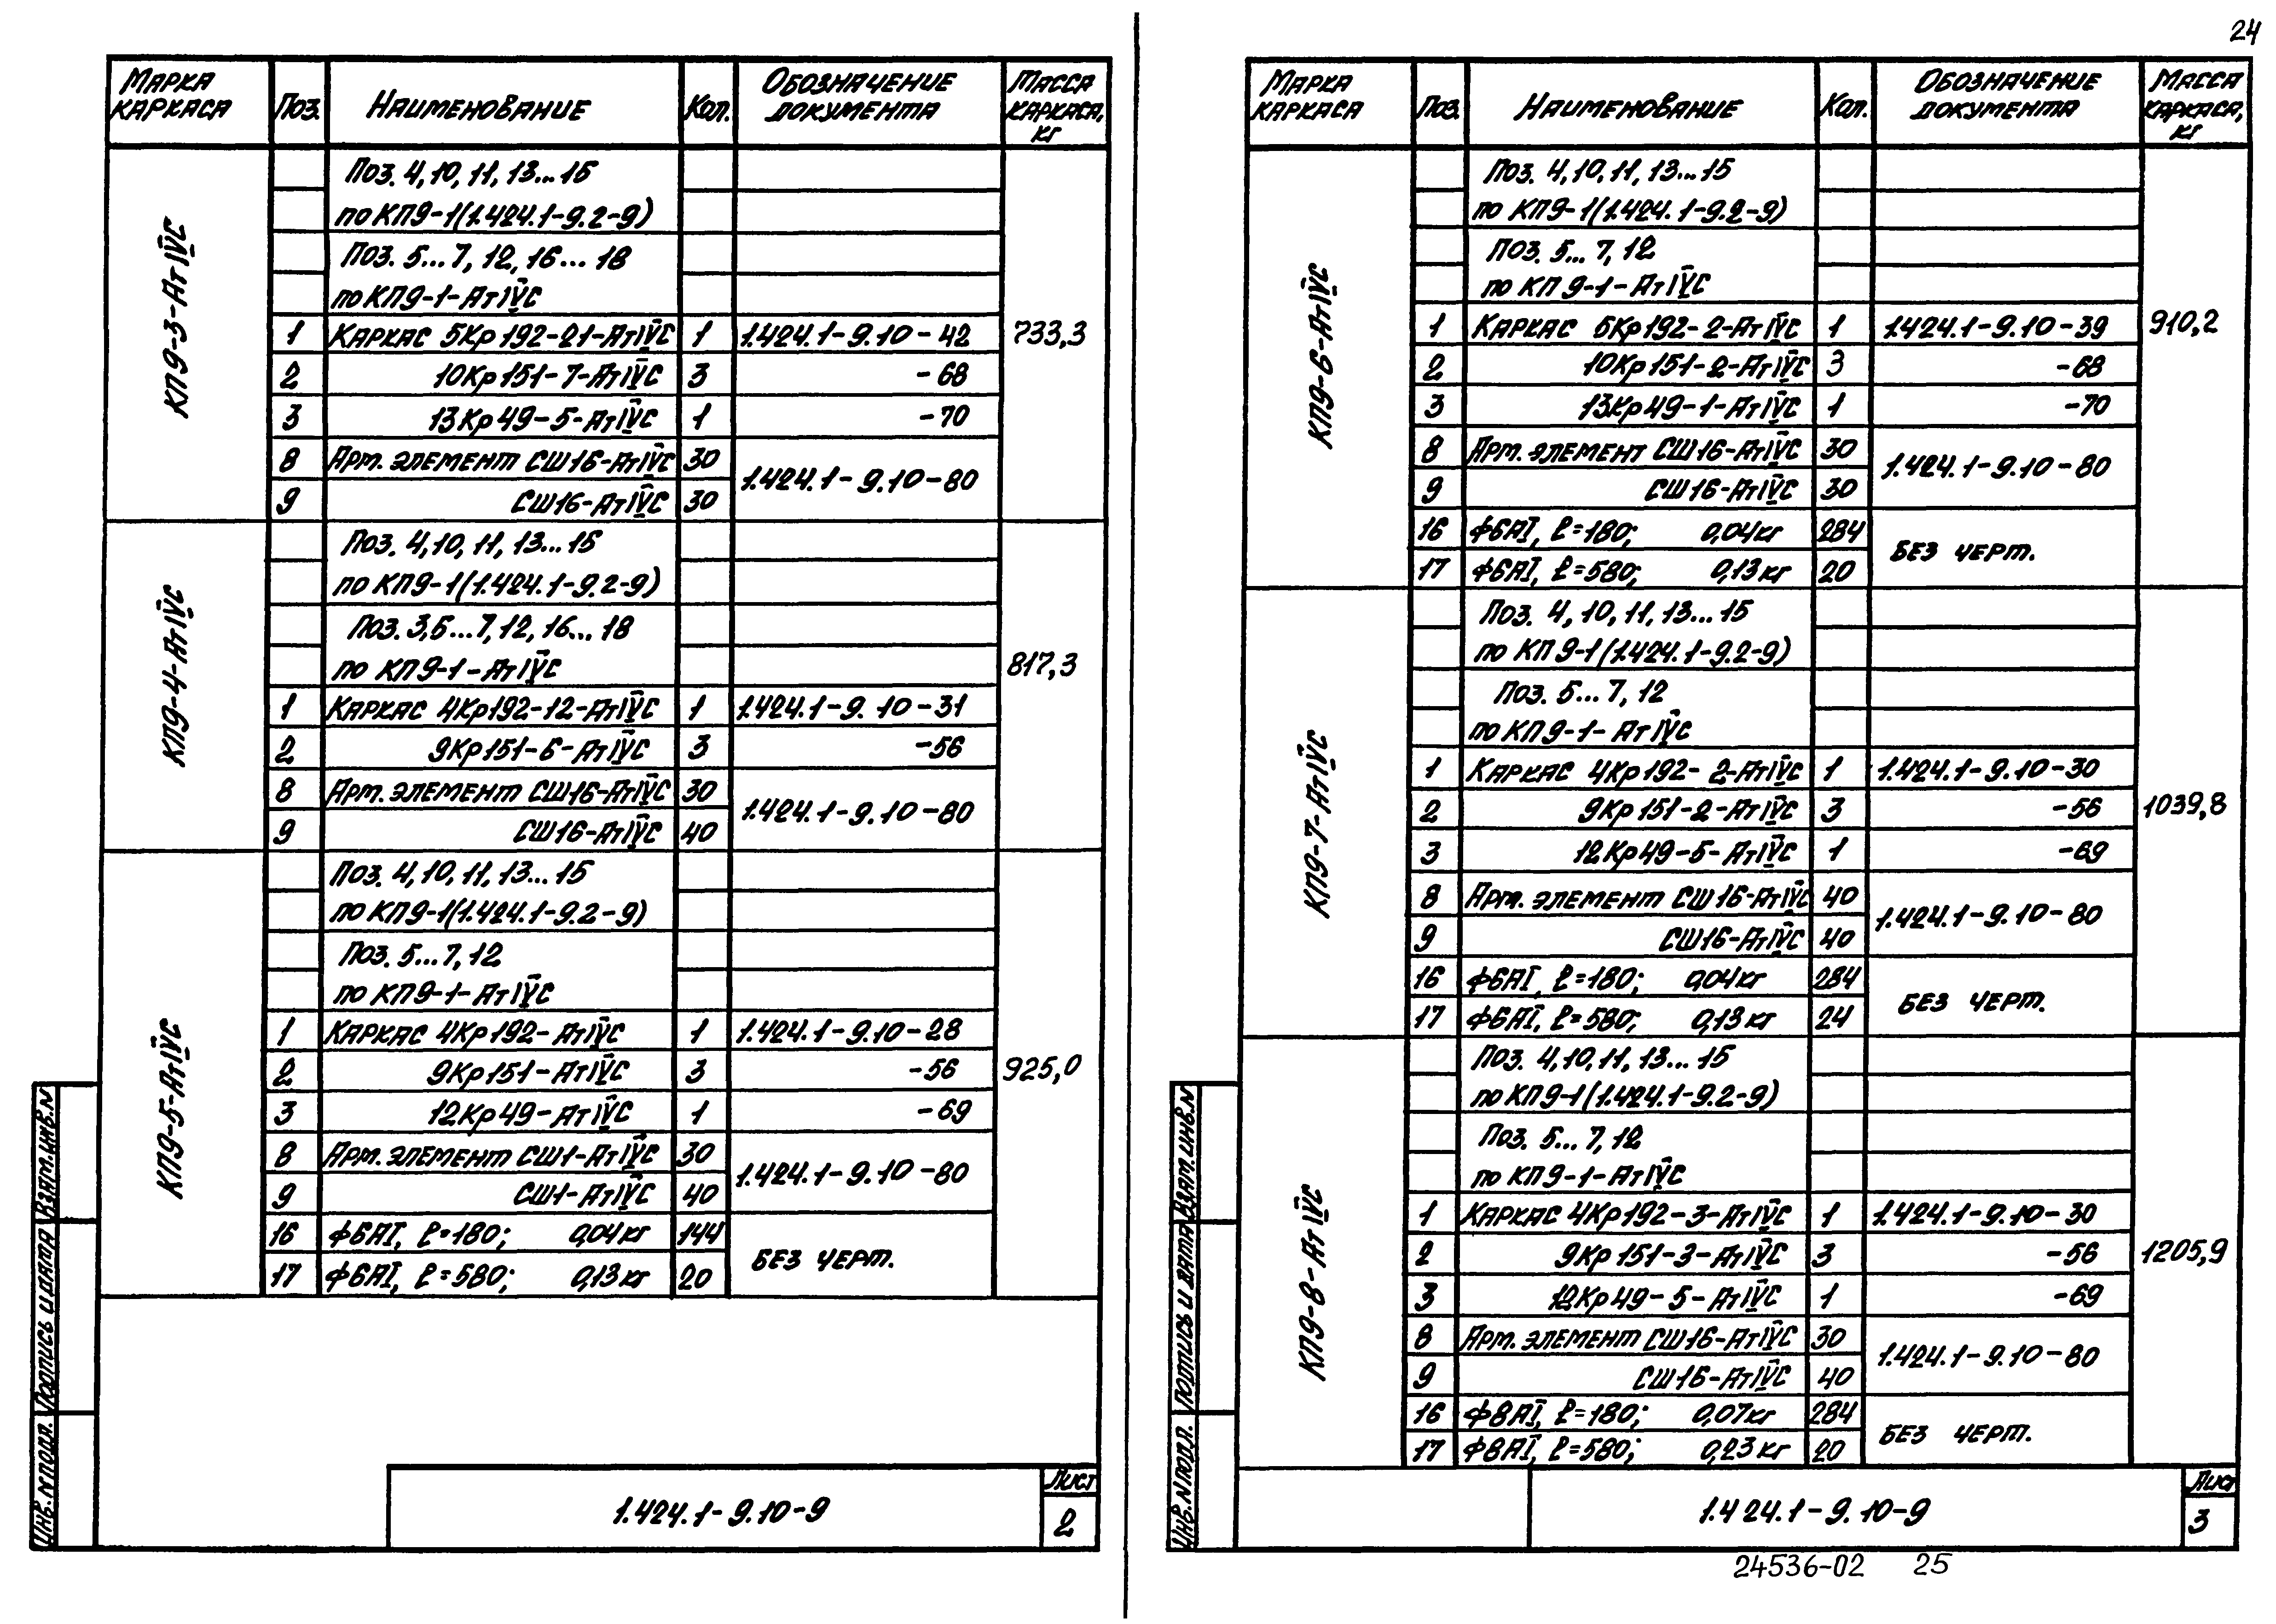 24
Марка каркаса | Поз. | Наименование | Кол. | Обозначение документа | Масса каркаса, кг
КП9-3-АтIVС
Поз. 4, 10, 11, 13...15
по КП9-1(1.424.1-9.2-9)
Поз. 5...7, 12, 16...18
по КП9-1-АтIVС
1 | Каркас 5Кр192-21-АтIVС | 1 | 1.424.1-9.10-42 | 733,3
2 | 10Кр151-7-АтIVС | 3 | -68
3 | 13Кр49-5-АтIVС | 1 | -70
8 | Арм. элемент СШ16-АтIVС | 30 | 1.424.1-9.10-80
9 | СШ16-АтIVС | 30
КП9-4-АтIVС
Поз. 4, 10, 11, 13...15
по КП9-1(1.424.1-9.2-9)
Поз. 3, 5...7, 12, 16...18
по КП9-1-АтIVС
817,3
1 | Каркас 4Кр192-12-АтIVС | 1 | 1.424.1-9.10-31
2 | 9Кр151-6-АтIVС | 3 | -56
8 | Арм. элемент СШ16-АтIVС | 30 | 1.424.1-9.10-80
9 | СШ16-АтIVС | 40
КП9-5-АтIVС
Поз. 4, 10, 11, 13...15
по КП9-1(1.424.1-9.2-9)
Поз. 5...7, 12
по КП9-1-АтIVС
1 | Каркас 4Кр192-АтIVС | 1 | 1.424.1-9.10-28
2 | 9Кр151-АтIVС | 3 | -56 | 925,0
3 | 12Кр49-АтIVС | 1 | -69
8 | Арм. элемент СШ1-АтIVС | 30 | 1.424.1-9.10-80
9 | СШ1-АтIVС | 40
16 | ф6АI, ℓ=180; 0,04кг | 144 | без черт.
17 | ф6АI, ℓ=580; 0,13кг | 20
Инв.N подл. | Подпись и дата | Взам.инв.N
1.424.1-9.10-9
Лист
2
Марка каркаса | Поз. | Наименование | Кол. | Обозначение документа | Масса каркаса, кг
КП9-6-АтIVС
Поз. 4, 10, 11, 13...15
по КП9-1(1.424.1-9.2-9)
Поз. 5...7, 12
по КП9-1-АтIVС
1 | Каркас 5Кр192-2-АтIVС | 1 | 1.424.1-9.10-39 | 910,2
2 | 10Кр151-2-АтIVС | 3 | -68
3 | 13Кр49-1-АтIVС | 1 | -70
8 | Арм. элемент СШ16-АтIVС | 30 | 1.424.1-9.10-80
9 | СШ16-АтIVС | 30
16 | ф6АI, ℓ=180; 0,04кг | 284 | без черт.
17 | ф6АI, ℓ=580; 0,13кг | 20
КП9-7-АтIVС
Поз. 4, 10, 11, 13...15
по КП9-1(1.424.1-9.2-9)
Поз. 5...7, 12
по КП9-1-АтIVС
1 | Каркас 4Кр192-2-АтIVС | 1 | 1.424.1-9.10-30
2 | 9Кр151-2-АтIVС | 3 | -56 | 1039,8
3 | 12Кр49-5-АтIVС | 1 | -69
8 | Арм. элемент СШ16-АтIVС | 40 | 1.424.1-9.10-80
9 | СШ16-АтIVС | 40
16 | ф6АI, ℓ=180; 0,04кг | 284 | без черт.
17 | ф6АI, ℓ=580; 0,13кг | 24
КП9-8-АтIVС
Поз. 4, 10, 11, 13...15
по КП9-1(1.424.1-9.2-9)
Поз. 5...7, 12
по КП9-1-АтIVС
1 | Каркас 4Кр192-3-АтIVС | 1 | 1.424.1-9.10-30
2 | 9Кр151-3-АтIVС | 3 | -56 | 1205,9
3 | 12Кр49-5-АтIVС | 1 | -69
8 | Арм. элемент СШ16-АтIVС | 30 | 1.424.1-9.10-80
9 | СШ16-АтIVС | 40
16 | ф8АI, ℓ=180; 0,07кг | 284 | без черт.
17 | ф8АI, ℓ=580; 0,23кг | 20
Инв.N подл. | Подпись и дата | Взам.инв.N
1.424.1-9.10-9
Лист
3
24536-02 25